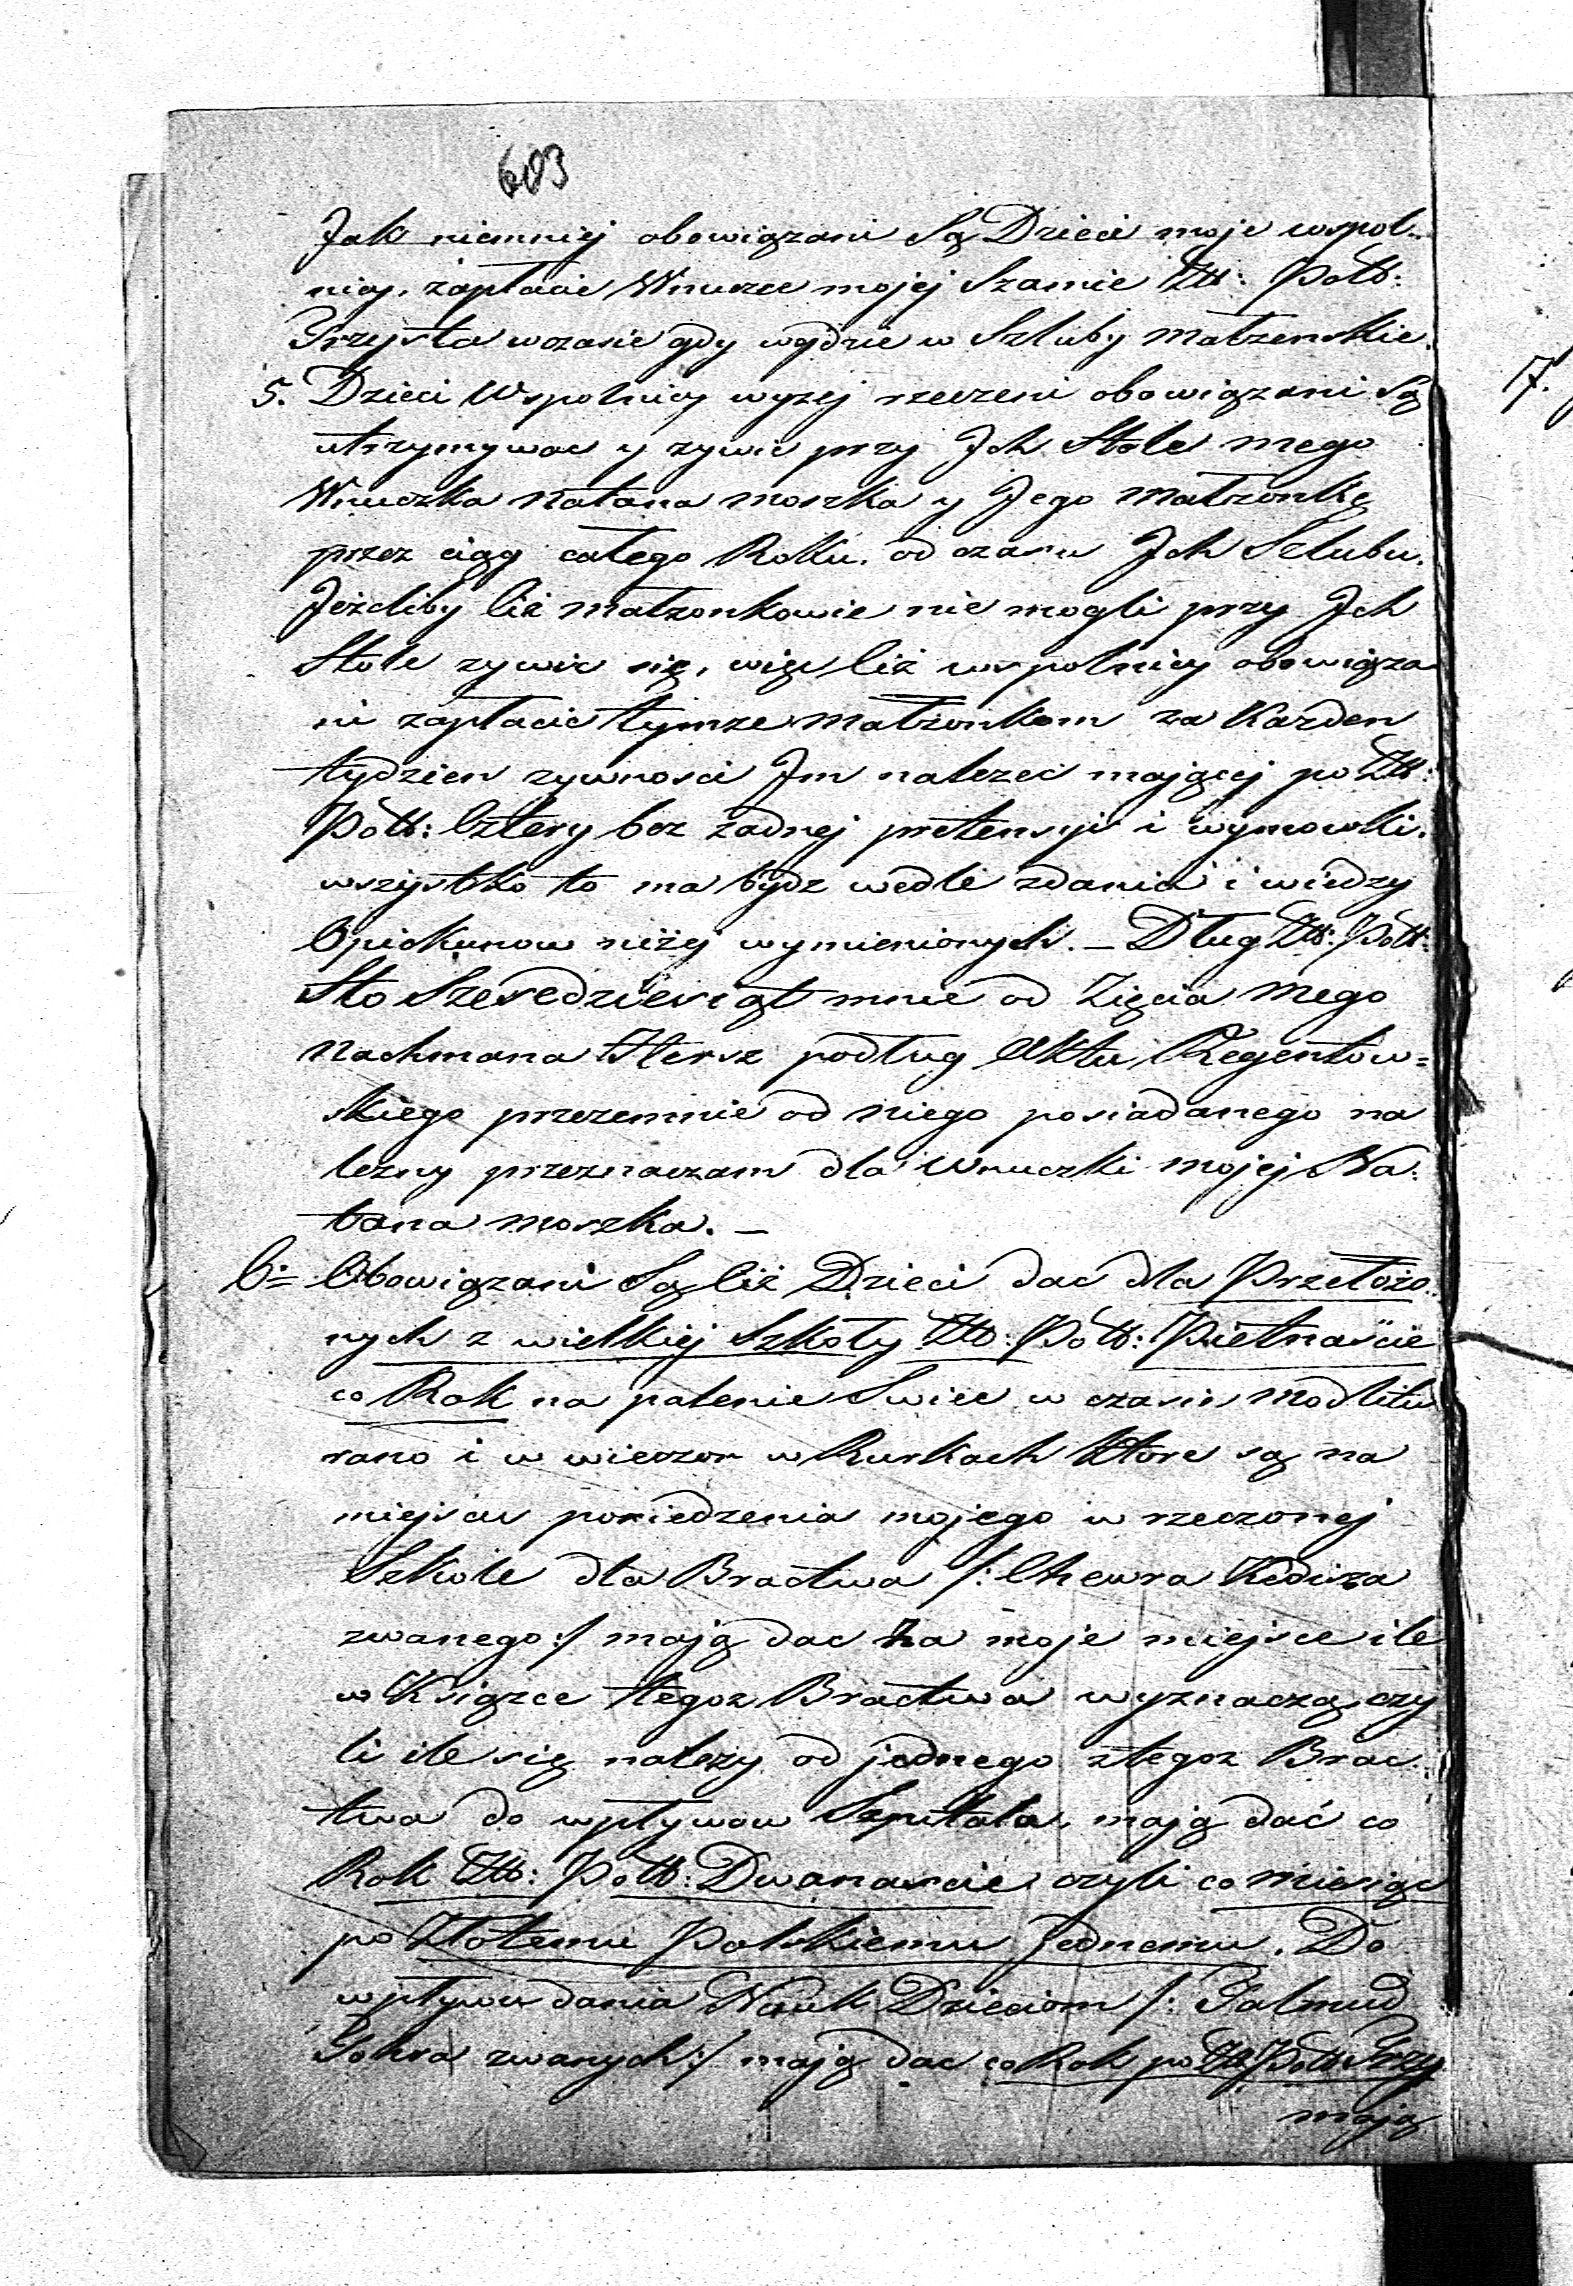 603
Jak niemniej obowiązani Są Dzieci moje wspol-
nicy, zapłacic Wnuczce mojej Szamie Złł: Poll:
Trzysta wczasie gdy wejdzie w Szluby Małzenskie.
5. Dzieci Wspolnicy wyzej rzeczeni obowiązani Są
utrzymywac y zywic przy Jch Stole mego
Wnuczka Natana Moszka y Jego Małzonkę
przez ciąg całego Roku. od czasu Jch Szlubu.
Jeżeliby Ciż Małzonkowie nie mogli przy Jch
Stole zywic się, więc Ciż wspolnicy obowiąza
ni zapłacic tymze Małżonkom za Karden
tydzien zywnosci Jm nalezec mającej po Złł:
Poll: Cztery bez żadnej pretensyi i wymowki.
wszystko to ma bydz wedle zdania i wiedzy
Opiekunow niżej wymienionych. — Dług Złł: Poll:
Sto Szescdziesiąt mnie od Zięcia mego
Nachmana Hersz podług Aktu Regentow=
skiego przezemnie od niego posiadanego na
lezny przeznaczam dla Wnuczki mojej Na:
tana Moszka. —
6:= Obowiązani Są Ciż Dzieci dac dla Przełożo-
nych z wielkiej Szkoły Złł: Poll: Pietnaście
co Rok na palenie Swiec w czasie modlitw
rano i w wieczor w Rurkach które są na
miejscu posiedzenia mojego w rzeczonej
Szkole dla Bractwa /: Chewra Kedisza
zwanego:/ mają dac za moje miejsce ile
w Ksiązce tegoz Bractwa wyznaczą, czy
li ile się nalezy od jednego ztegoz Brac-
twa do wpływow Szpitala, mają dać co
Rok Złł: Poll: Dwanascie czyli co Miesiąc
po Złotemu Polskiemu Jednemu. Do
wpływu dania Nauk Dzieciom /: Talmud
Tohra zwanych:/ mają dac co Rok po Złł: Poll: Trzy
mają